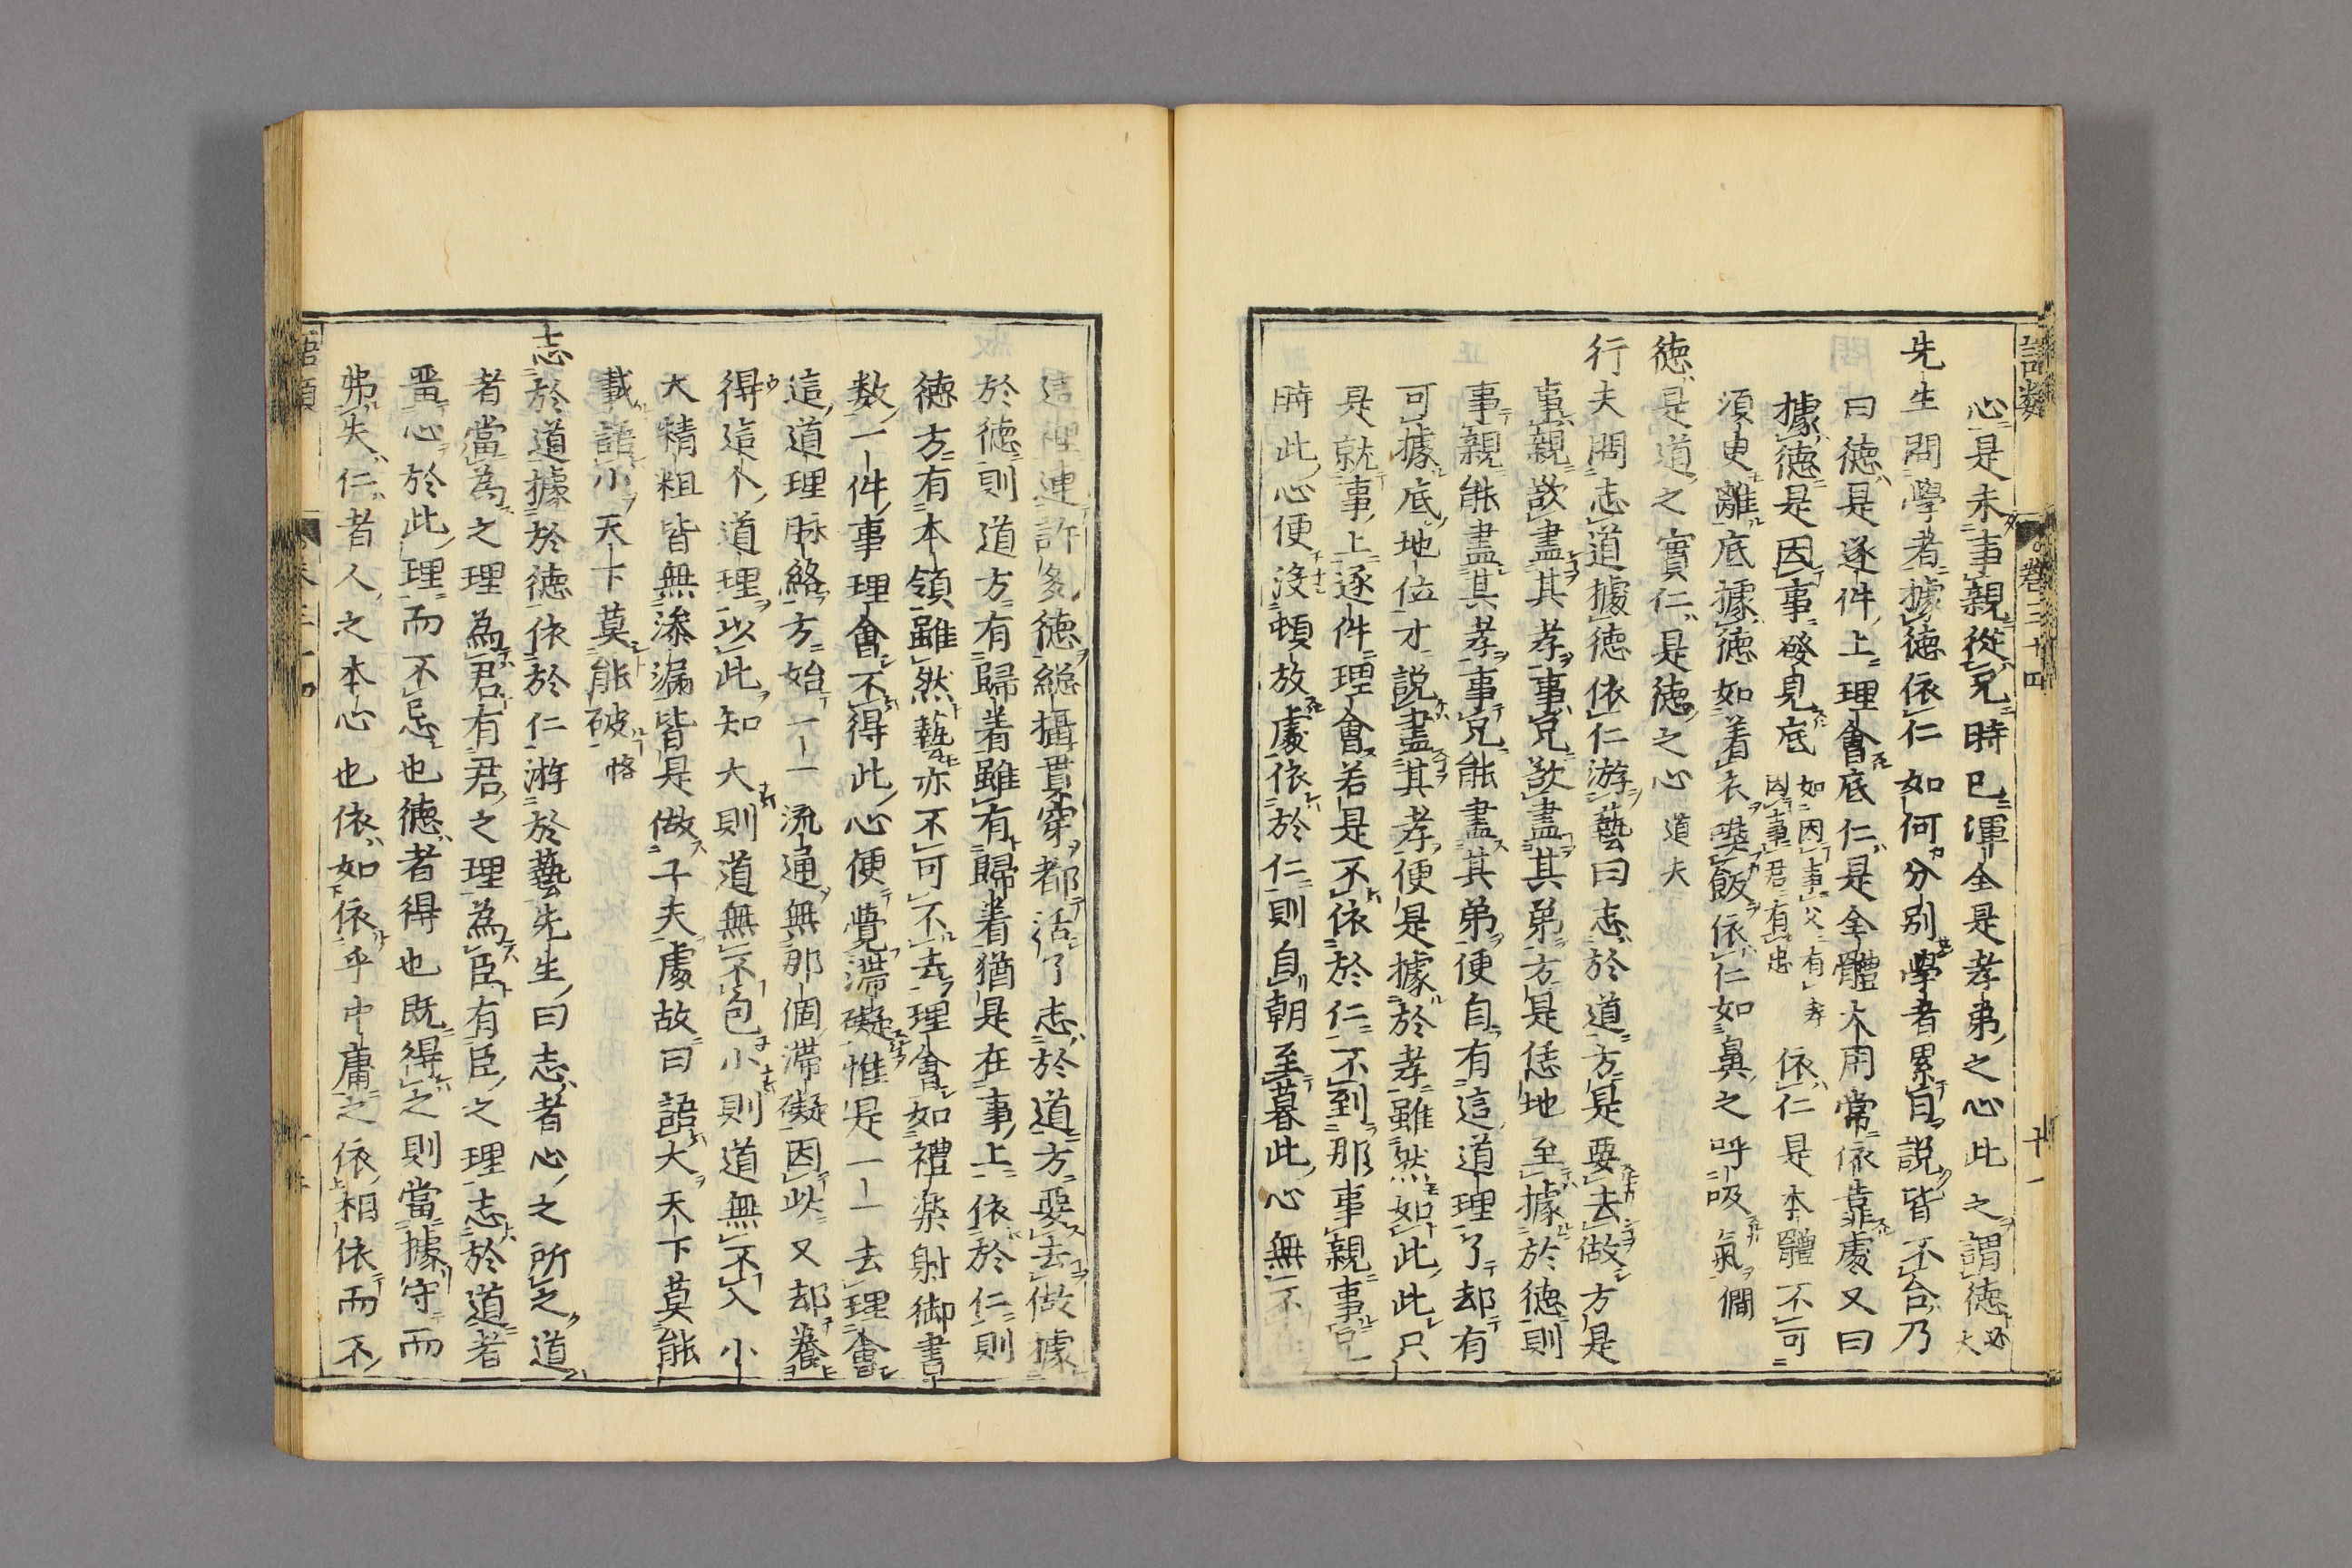 語類 卷三十四 十一
心是未事親從兄時已渾全是孝弟之心此之謂德必大
先生問學者據德依仁如何分別學者累自說皆不合乃
曰德是逐件上理會底仁是全體大用常依靠處又曰
據德是因事發見底如因事父有孝因事君有忠依仁是本體不可
須臾離底據德如着衣喫飯依仁如鼻之呼吸氣僩
德是道之實仁是德之心道夫
行夫問志道據德依仁游藝曰志於道方是要去做方是
事親欲盡其孝事兄欲盡其弟方是恁地至據於德則
事親能盡其孝事兄能盡其弟便自有這道理了却有
可據底地位才說盡其孝便是據於孝雖然如此此只
是就事上逐件理會若是不依於仁不到那事親事兄
時此心便沒頓放處依於仁則自朝至暮此心無不
這裡連許多德總攝貫穿都活了志於道方要去做據
於德則道方有歸着雖有歸着猶是在事上依於仁則
德方有本領雖然藝亦不可不去理會如禮樂射御書
数一件事理會不得此心便覺滯礙惟是一一去理會
這道理脉絡方始一一流通無那個滯礙因此又却養
得這个道理以此知大則道無不包小則道無不入小
大精粗皆無滲漏皆是做子夫處故曰語大天下莫能
載語小天下莫能破恪
志於道據於德依於仁游於藝先生曰志者心之所之道
者當為之理為君有君之理為臣有臣之理志於道者
畱心於此理而不忘也德者得也既得之則當據守而
弗失仁者人之本心也依如依乎中庸之依相依而不
語類